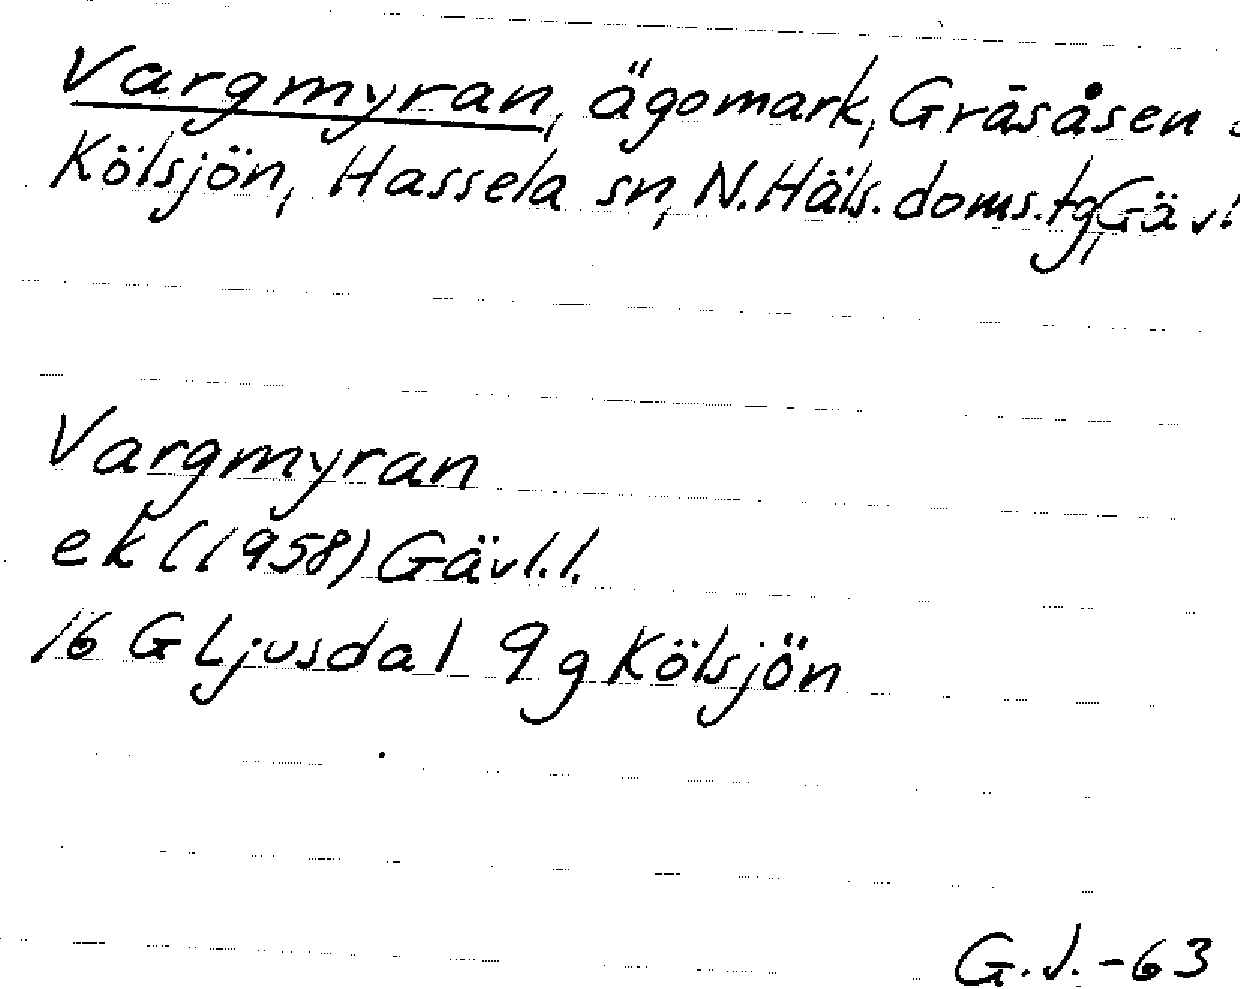 Vargmyran, ägomark, Gräsåsen
Kölsjön, Hassela sn, N.Häls.doms.tg, Gävl.
Vargmyran
ek (1958) Gävl.l.
16 G Ljusdal 9 g Kölsjön
G.J.-63